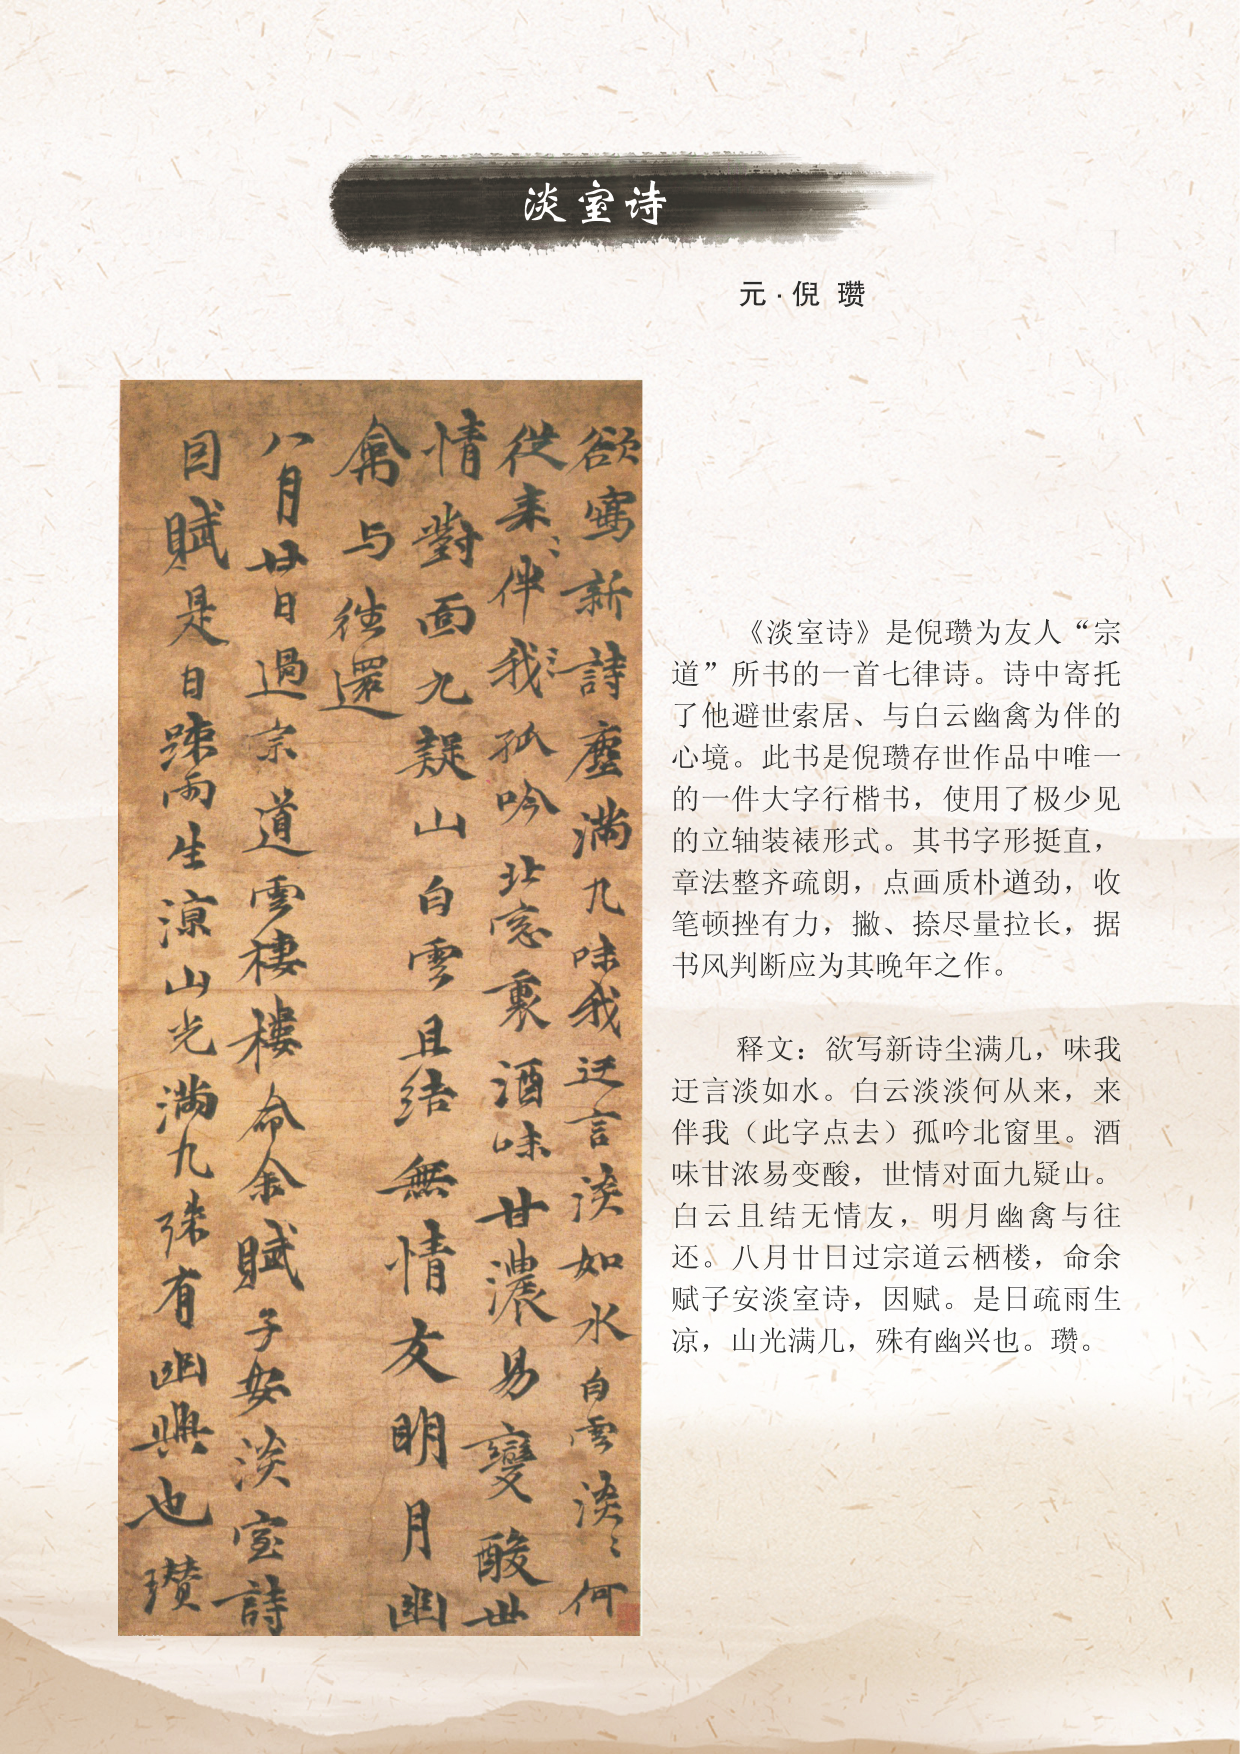 淡室诗
元·倪 瓒
欲寫新詩塵滿几味我迂言淡如水白雲淡〻何
從来〻伴我〻孤吟北窓裏酒味甘濃易變酸世
情對面九疑山白雲且结無情友明月幽
禽与往還
八月廿日過宗道雲棲樓命余賦子安淡室詩
因賦是日疎雨生涼山光満几殊有幽興也瓚
《淡室诗》是倪瓒为友人“宗
道”所书的一首七律诗。诗中寄托
了他避世索居、与白云幽禽为伴的
心境。此书是倪瓒存世作品中唯一
的一件大字行楷书，使用了极少见
的立轴装裱形式。其书字形挺直，
章法整齐疏朗，点画质朴遒劲，收
笔顿挫有力，撇、捺尽量拉长，据
书风判断应为其晚年之作。
释文：欲写新诗尘满几，味我
迂言淡如水。白云淡淡何从来，来
伴我（此字点去）孤吟北窗里。酒
味甘浓易变酸，世情对面九疑山。
白云且结无情友，明月幽禽与往
还。八月廿日过宗道云栖楼，命余
赋子安淡室诗，因赋。是日疏雨生
凉，山光满几，殊有幽兴也。瓒。